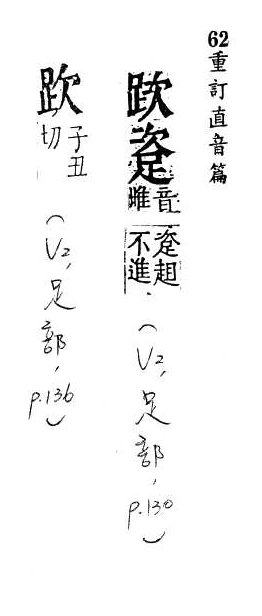 62重訂直音篇
音雎
趄
不進
(V2,足部,p.130)
子丑切
(V2,足部,p.136)